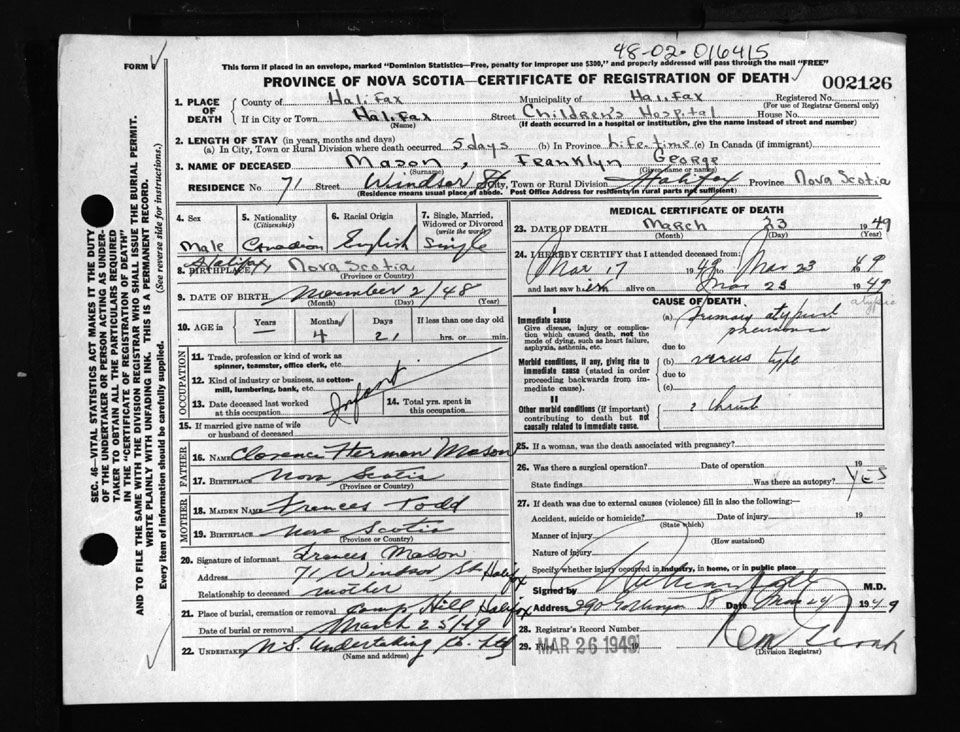 48-02-016415
FORM
This form if placed in an envelope, marked "Dominion Statistics—Free, penalty for improper use $300," and properly addressed will pass through the mail "FREE"
PROVINCE OF NOVA SCOTIA—CERTIFICATE OF REGISTRATION OF DEATH
002126
1. PLACE OF DEATH
County of Halifax Municipality of Halifax Registered No.
(For use of Registrar General only)
If in City or Town Halifax Street Children's Hospital House No.
(Name) (If death occurred in a hospital or institution, give the name instead of street and number)
2. LENGTH OF STAY (in years, months and days)
(a) In City, Town or Rural Division where death occurred 5 days (b) In Province Life-time (c) In Canada (if immigrant)
3. NAME OF DECEASED Mason, Franklyn George
(Surname) (Given name or names)
RESIDENCE No. 71 Street Windsor St City, Town or Rural Division Halifax Province Nova Scotia
(Residence means usual place of abode. Post Office Address for residents in rural parts not sufficient)
4. Sex
Male
5. Nationality
(Citizenship)
Canadian
6. Racial Origin
English
7. Single, Married, Widowed or Divorced
(write the word)
Single
Halifax
8. BIRTHPLACE Nova Scotia
(Province or Country)
9. DATE OF BIRTH November 2/48
(Month) (Day) (Year)
10. AGE in Years Months Days If less than one day old
— 4 21 hrs. or min.
OCCUPATION
11. Trade, profession or kind of work as spinner, teamster, office clerk, etc.
12. Kind of industry or business, as cotton-mill, lumbering, bank, etc.
Infant
13. Date deceased last worked at this occupation
14. Total yrs. spent in this occupation
15. If married give name of wife or husband of deceased
FATHER
16. NAME Clarence Herman Mason
17. BIRTHPLACE Nova Scotia
(Province or Country)
MOTHER
18. MAIDEN NAME Frances Todd
19. BIRTHPLACE Nova Scotia
(Province or Country)
20. Signature of informant Frances Mason
Address 71 Windsor St Halifax
Relationship to deceased mother
21. Place of burial, cremation or removal Camp Hill Halifax
Date of burial or removal March 25/49
22. UNDERTAKER N.S. Undertaking Co. Ltd
(Name and address)
MEDICAL CERTIFICATE OF DEATH
23. DATE OF DEATH March 23 1949
(Month) (Day) (Year)
24. I HEREBY CERTIFY that I attended deceased from:
Mar 17 1949 to Mar 23 49
and last saw him alive on Mar 23 1949
CAUSE OF DEATH
atypic
I
Immediate cause
Give disease, injury or complication which caused death, not the mode of dying, such as heart failure, asphyxia, asthenia, etc.
(a) Primary atypical pneumonia
due to
Morbid conditions, if any, giving rise to immediate cause (stated in order proceeding backwards from immediate cause).
(b) virus type
due to
(c)
II
Other morbid conditions (if important) contributing to death but not causally related to immediate cause.
? thrush
25. If a woman, was the death associated with pregnancy?
26. Was there a surgical operation? Date of operation 19
State findings Was there an autopsy? YES
27. If death was due to external causes (violence) fill in also the following:
Accident, suicide or homicide? Date of injury 19
(State which)
Manner of injury
(How sustained)
Nature of injury
Specify whether injury occurred in industry, in home, or in public place
Signed by M.D.
Address 290 St Date Mar 24 1949
28. Registrar's Record Number
29. Filed MAR 26 1949 19
(Division Registrar)
SEC. 46—VITAL STATISTICS ACT MAKES IT THE DUTY OF THE UNDERTAKER OR PERSON ACTING AS UNDERTAKER TO OBTAIN ALL THE PARTICULARS REQUIRED IN THE "CERTIFICATE OF REGISTRATION OF DEATH" AND TO FILE THE SAME WITH THE DIVISION REGISTRAR WHO SHALL ISSUE THE BURIAL PERMIT.
WRITE PLAINLY WITH UNFADING INK. THIS IS A PERMANENT RECORD.
Every item of information should be carefully supplied. (See reverse side for instructions.)